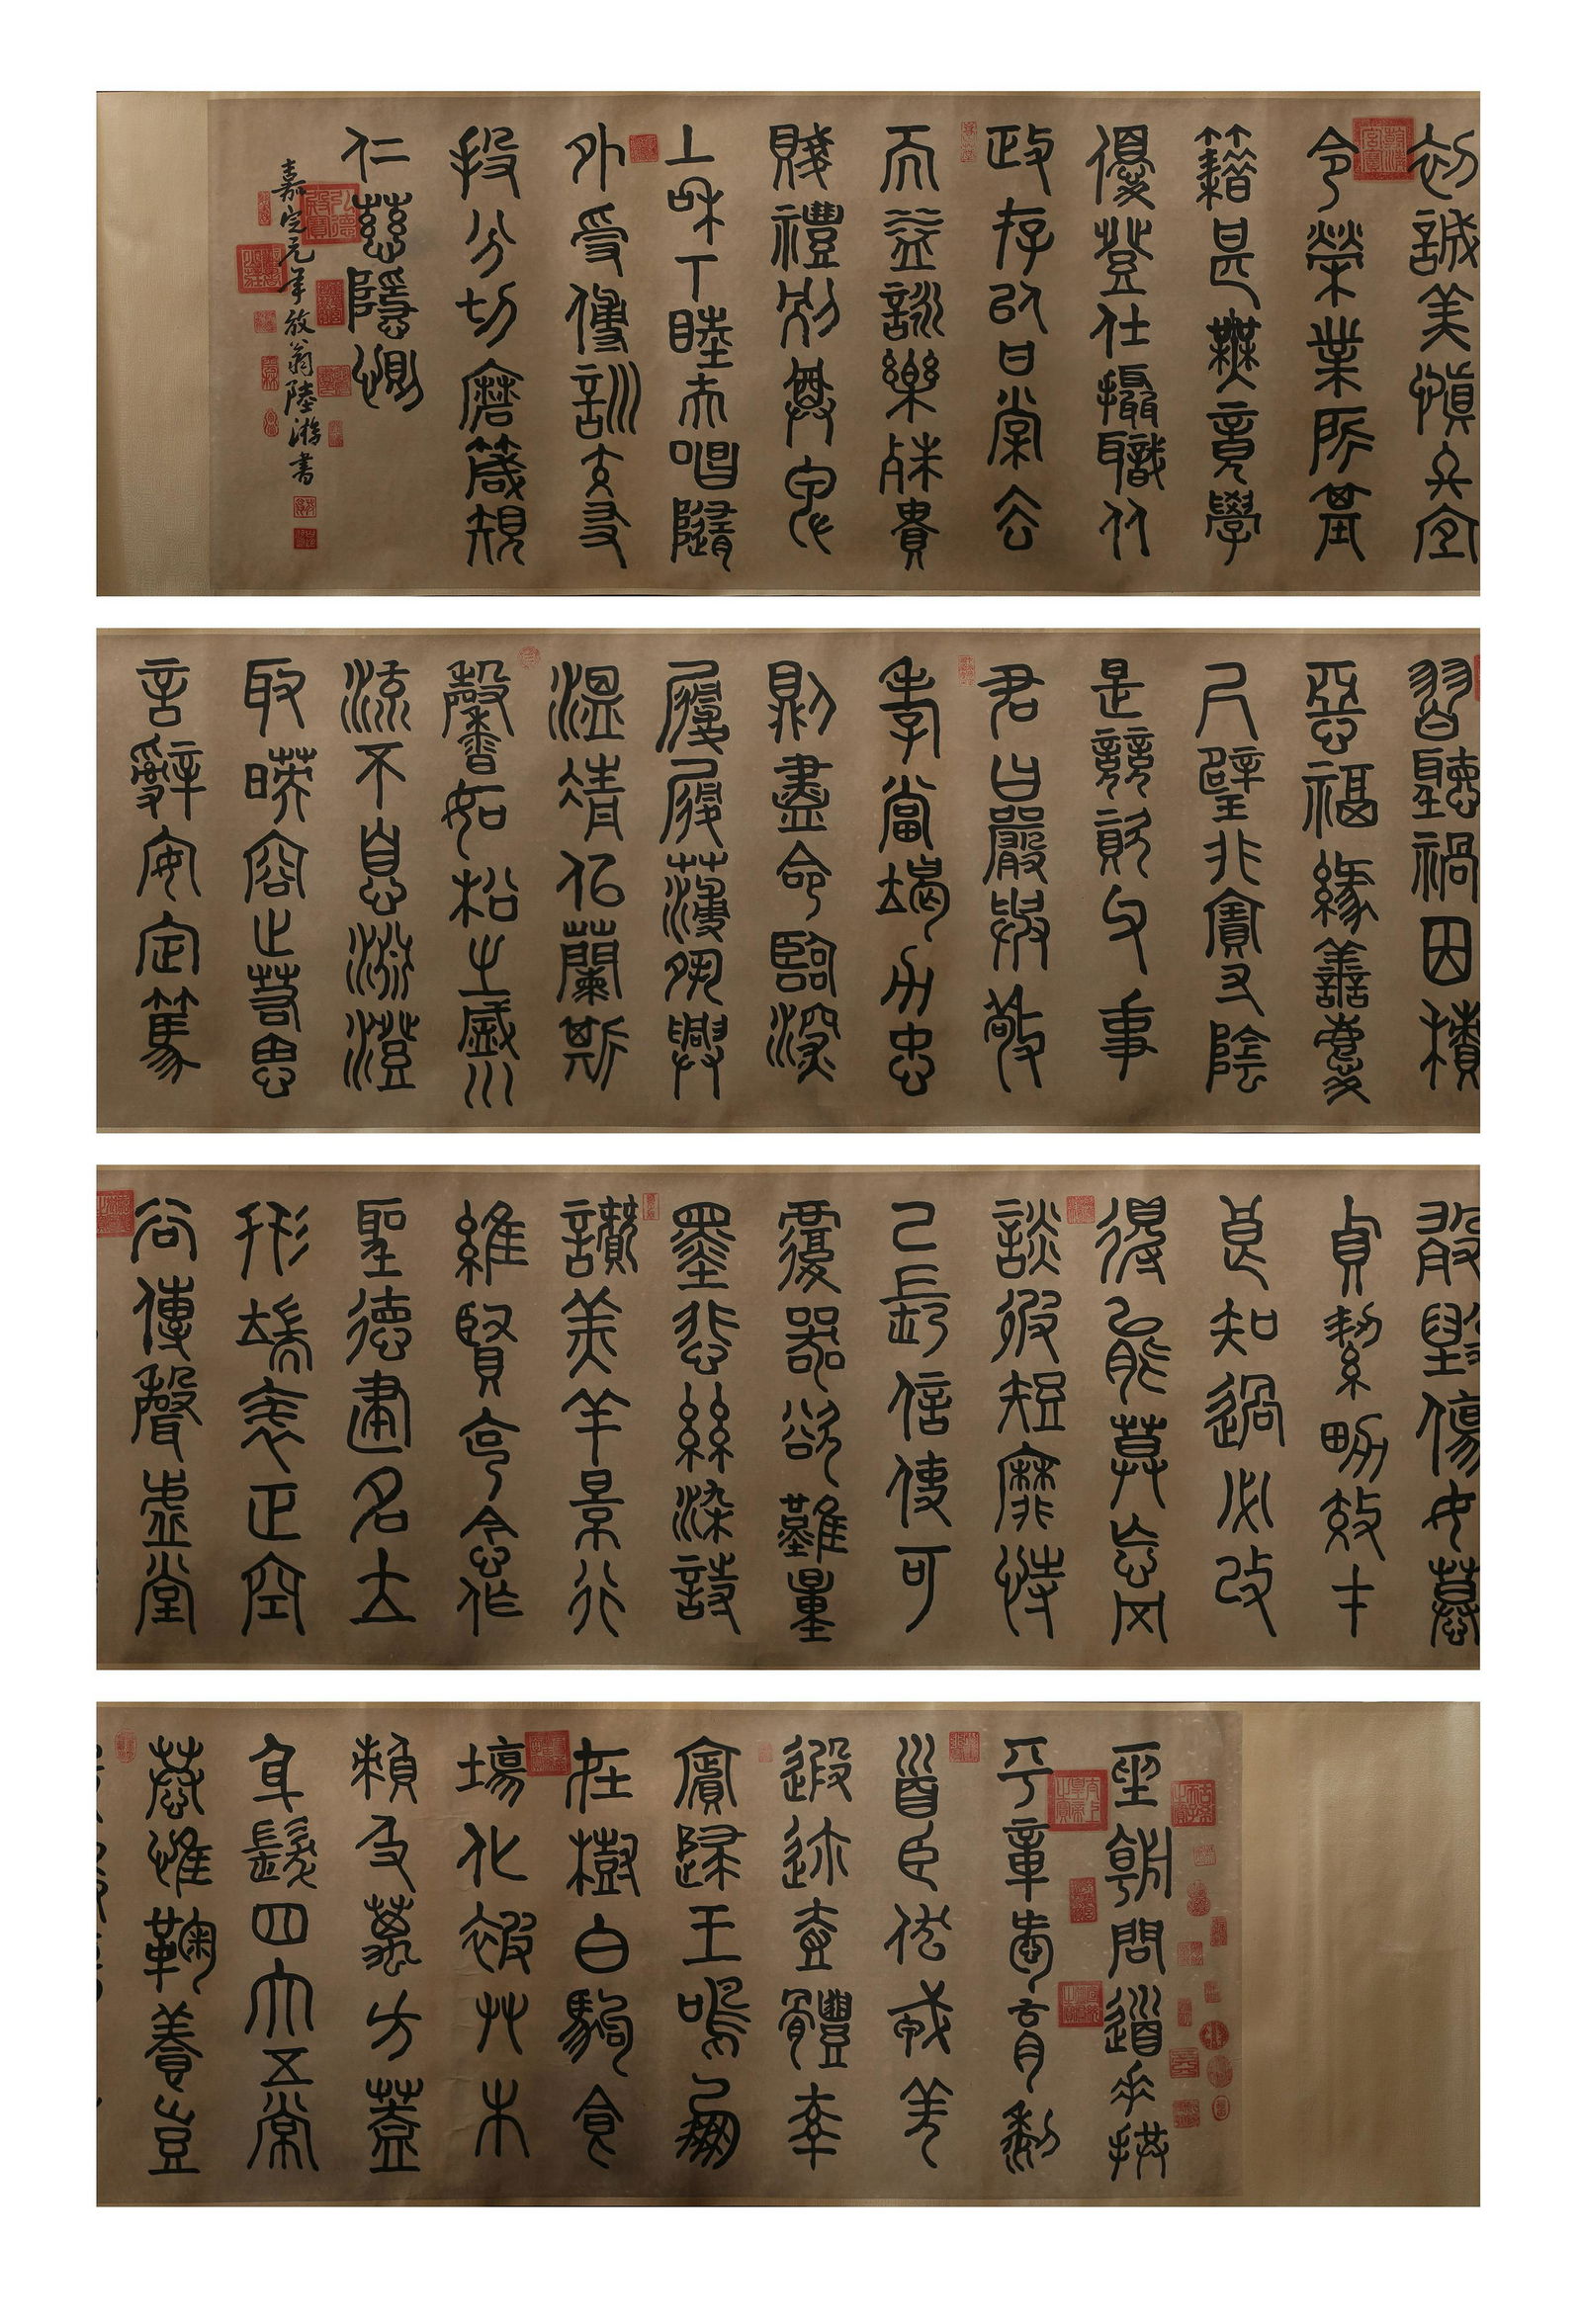 坐朝問道垂拱
平章愛育黎
首臣伏戎羌
遐邇壹體率
賓歸王鳴鳳
在樹白駒食
場化被草木
賴及萬方蓋
身髮四大五常
恭惟鞠養豈
敢毀傷女慕
貞絜男效才
良知過必改
得能莫忘罔
談彼短靡恃
己長信使可
覆器欲難量
墨悲絲染詩
讚羔羊景行
維賢克念作
聖德建名立
形端表正空
谷傳聲虛堂
習聽禍因積
惡福緣善慶
尺璧非寶寸陰
是競資父事
君曰嚴與敬
孝當竭力忠
則盡命臨深
履履薄夙興
溫凊似蘭斯
馨如松之盛川
流不息淵澄
取暎容止若思
言辭安定篤
初誠美慎終宜
令榮業所基
籍甚無竟學
優登仕攝職從
政存以甘棠去
而益詠樂殊貴
賤禮別尊卑
上和下睦夫唱隨
外受傅訓
投分切磨箴規
仁慈隱惻
嘉定元年放翁陸游書